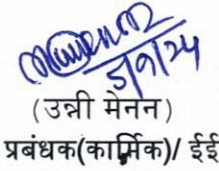 5/9/24
(उन्नी मेनन)
प्रबंधक(कार्मिक)/ ईई